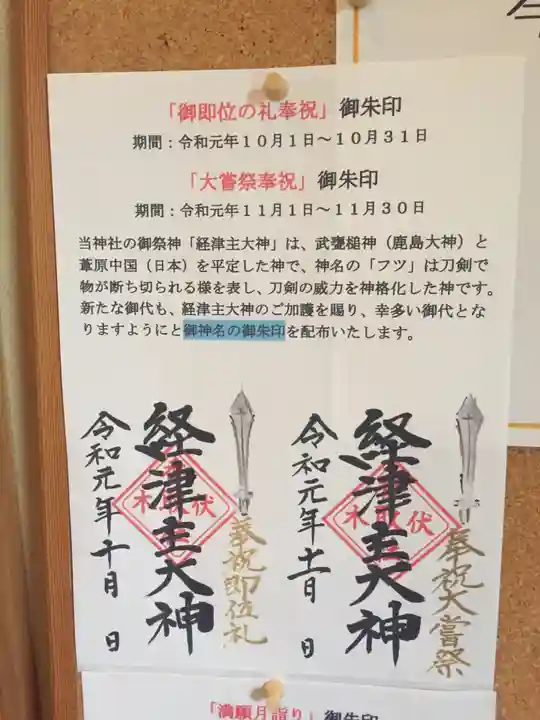 「御即位の礼奉祝」御朱印
期間：令和元年１０月１日～１０月３１日
「大嘗祭奉祝」御朱印
期間：令和元年１１月１日～１１月３０日
当神社の御祭神「経津主大神」は、武甕槌神（鹿島大神）と
葦原中国（日本）を平定した神で、神名の「フツ」は刀剣で
物が断ち切られる様を表し、刀剣の威力を神格化した神です。
新たな御代も、経津主大神のご加護を賜り、幸多い御代とな
りますようにと御神名の御朱印を配布いたします。
奉祝即位礼
経津主大神
令和元年十月　日
奉祝大嘗祭
経津主大神
令和元年十一月　日
「満願月詣り」御朱印